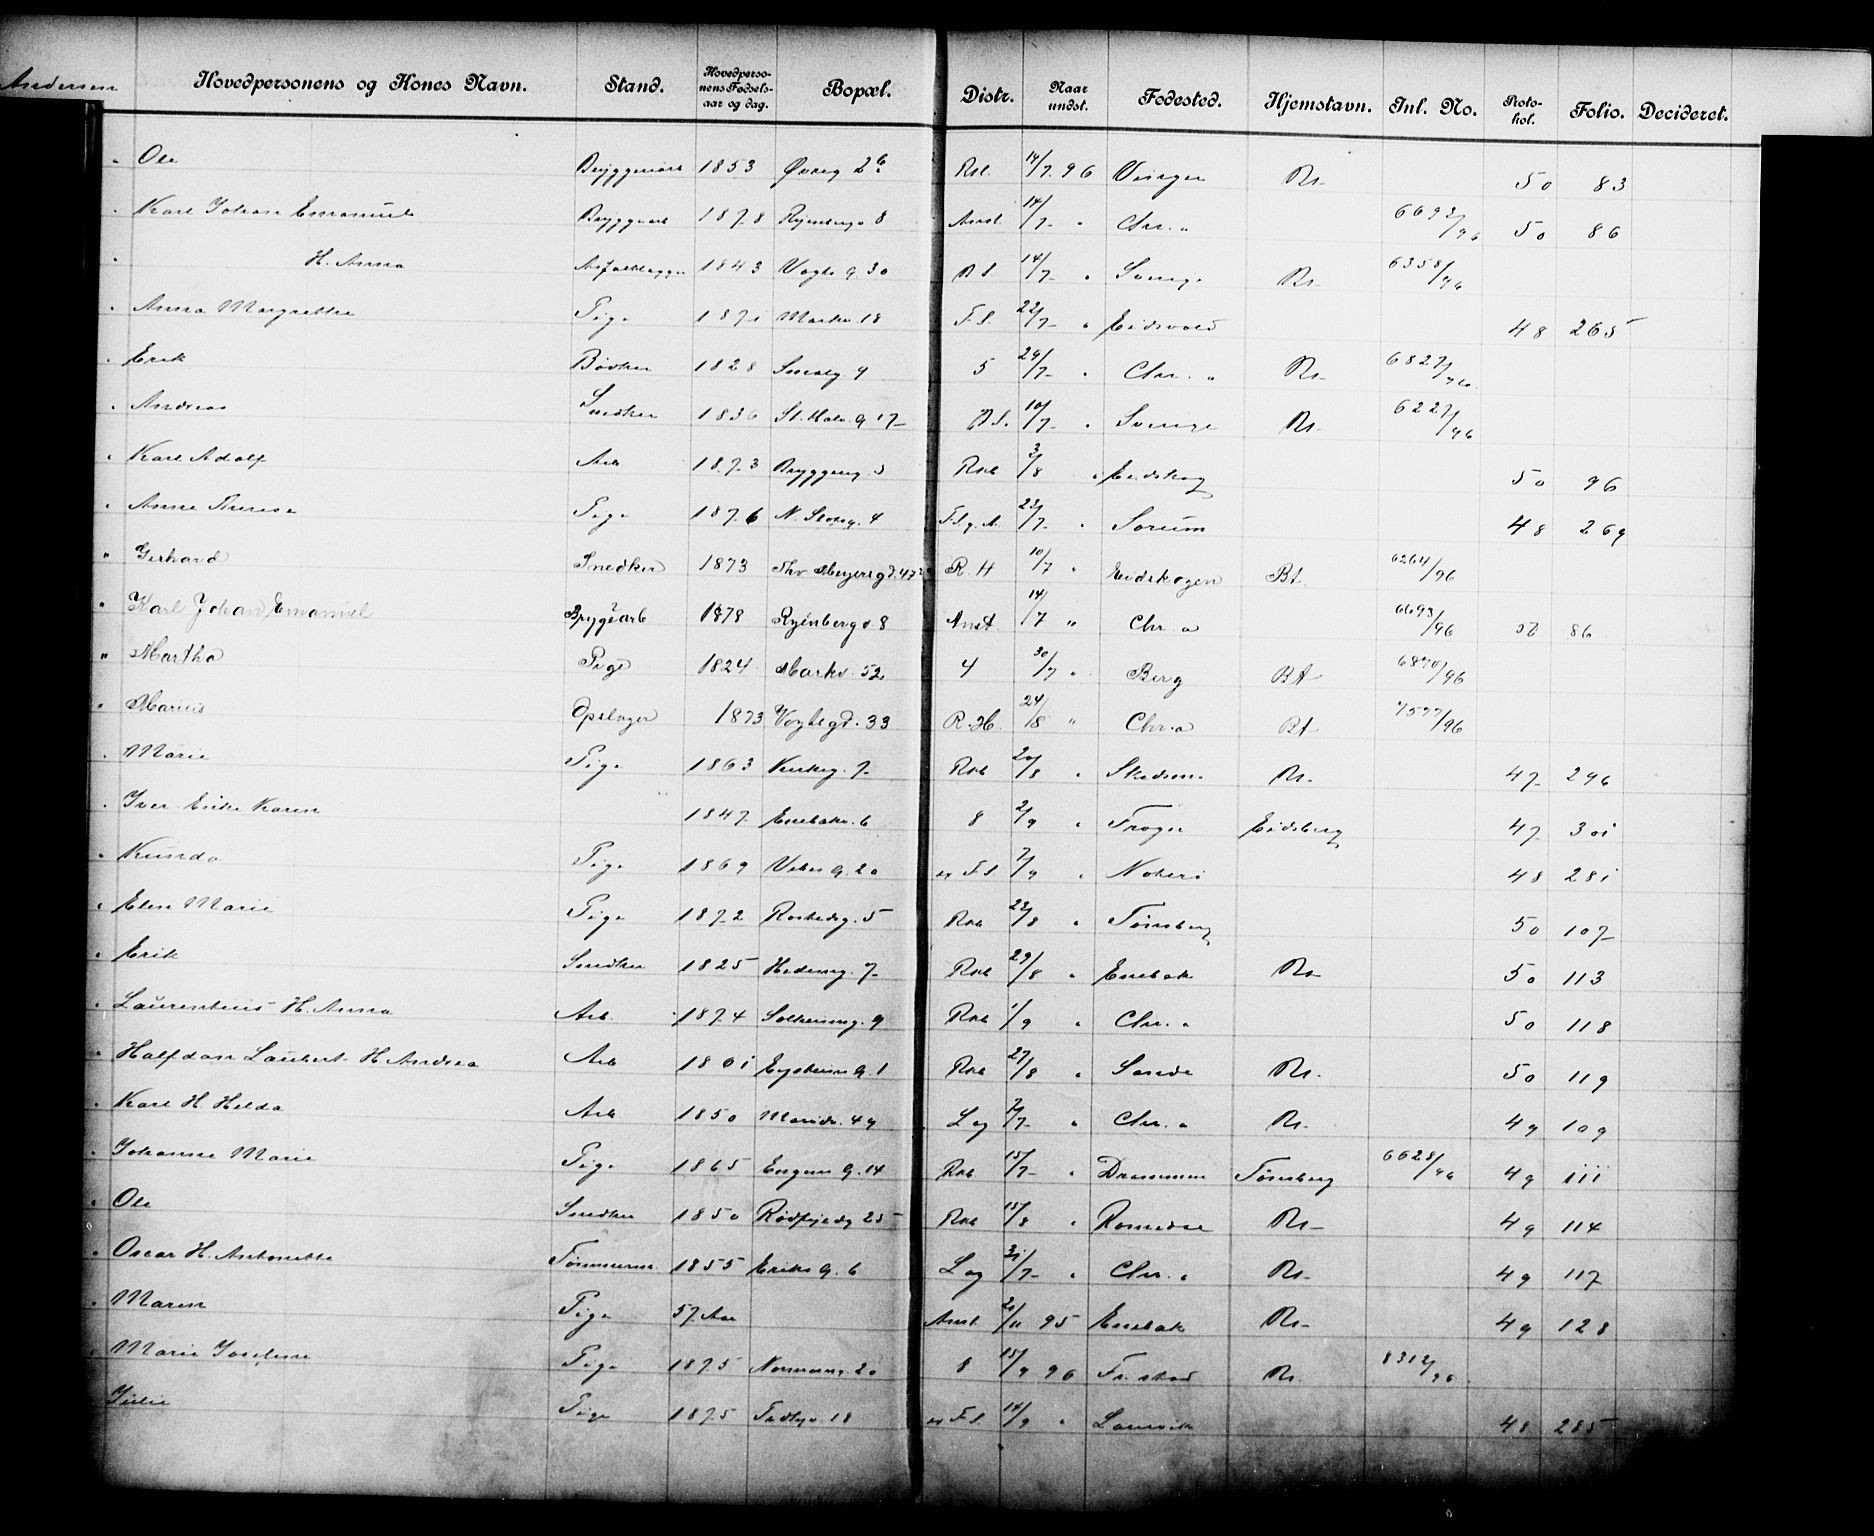 Andersen Hovedpersonens og Kones Navn. Stand. Hovedpersonens Fødselsaar og dag. Bopæl. Distr. Naar undst. Fødested. Hjemstavn. Inl. No. Protokol. Folio. Decideret.
" Ole Bryggeriarb 1853 14/7 96 Bt. 50 83
" Karl Johan Emanuel Bryggearb 1878 Ryenbergv 8 Anst. 14/7 " Chr.a 6693/96 50 86
" H. Anna Asfaltlægger 1843 Vogts g. 30 14/7 " Sverige Bt. 6358/96
" Anna Margrethe Pige 1871 Markv. 18 F.S. 22/7 " Eidsvold 48 265
" Erik Bødker 1828 Smalg. 9 5 29/7 " Chr.a Bt. 6827/96
" Andreas Snedker 1836 St. Halv. g 17 10/7 " Sverige Bt. 6227/96
" Karl Adolf Arb 1873 Bryggerg. 5 Rsb 3/8 " Eidskog 50 96
" Anne Therese Pige 1876 N. Slotsg. 4 23/7 " Sørum 48 269
" Gerhard Snedker 1873 Thv Meyersgd. 47 R. H 10/7 " Eidskogen Bt. 6264/96
" Karl Johan Emanuel Bryggearb 1878 Ryenbergv. 8 Anst. 14/7 " Chr.a 6693/96 50 86
" Martha Pige 1824 Markv. 52 4 30/7 " Berg Bt 6870/96
" Marius Opslager 1873 Vogtsgd. 33 R. H. 24/8 " Chr.a Bt 7577/96
" Marie Pige 1863 Kirkeg. 7 Rsb 20/8 " Skedsmo Bt. 47 296
" Iver Enke Karen 1847 Enebakv. 6 8 2/9 " Trøgst Eidsberg 47 301
" Kunda Pige 1869 g. 20 F.S. 7/9 " Noterø 48 281
" Elen Marie Pige 1872 5 Rsb 22/8 " Tønsberg 50 107
" Erik Snedker 1825 Hedemg. 7 Rsb 29/8 " Enebak Bt 50 113
" Laurentius H. Anna Arb. 1874 9 Rsb 1/9 " Chr.a 50 118
" Halfdan Laubert H Andrea Arb 1861 Eystens g. 1 Rsb 27/8 " Sande Bt. 50 119
" Karl H. Hilda Arb 1850 Marido. 49 Lag 7/7 " Chr.a Bt. 49 109
" Johanne Marie Pige 1865 Engens g. 14 Rsb 15/7 " Drammen Tønsberg 6628/96 49 111
" Ole Snedker 1850 Rødfyldg 25 Rsb 15/8 " Romedal Bt. 49 114
" Oscar H. Antonette Tømmerm. 1855 Eriks g. 6 Lag 31/7 " Chr.a Bt. 49 117
" Maren Pige 57 Aar Anst. 2/11 95 Enebak Bt. 49 128
" Marie Josefine Pige 1875 Normannsg. 20 8 15/9 96 Fr.stad Bt. 8312/96
" Julie Pige 1875 Toftsgv. 18 F.S. 14/9 " Laurvik 48 285